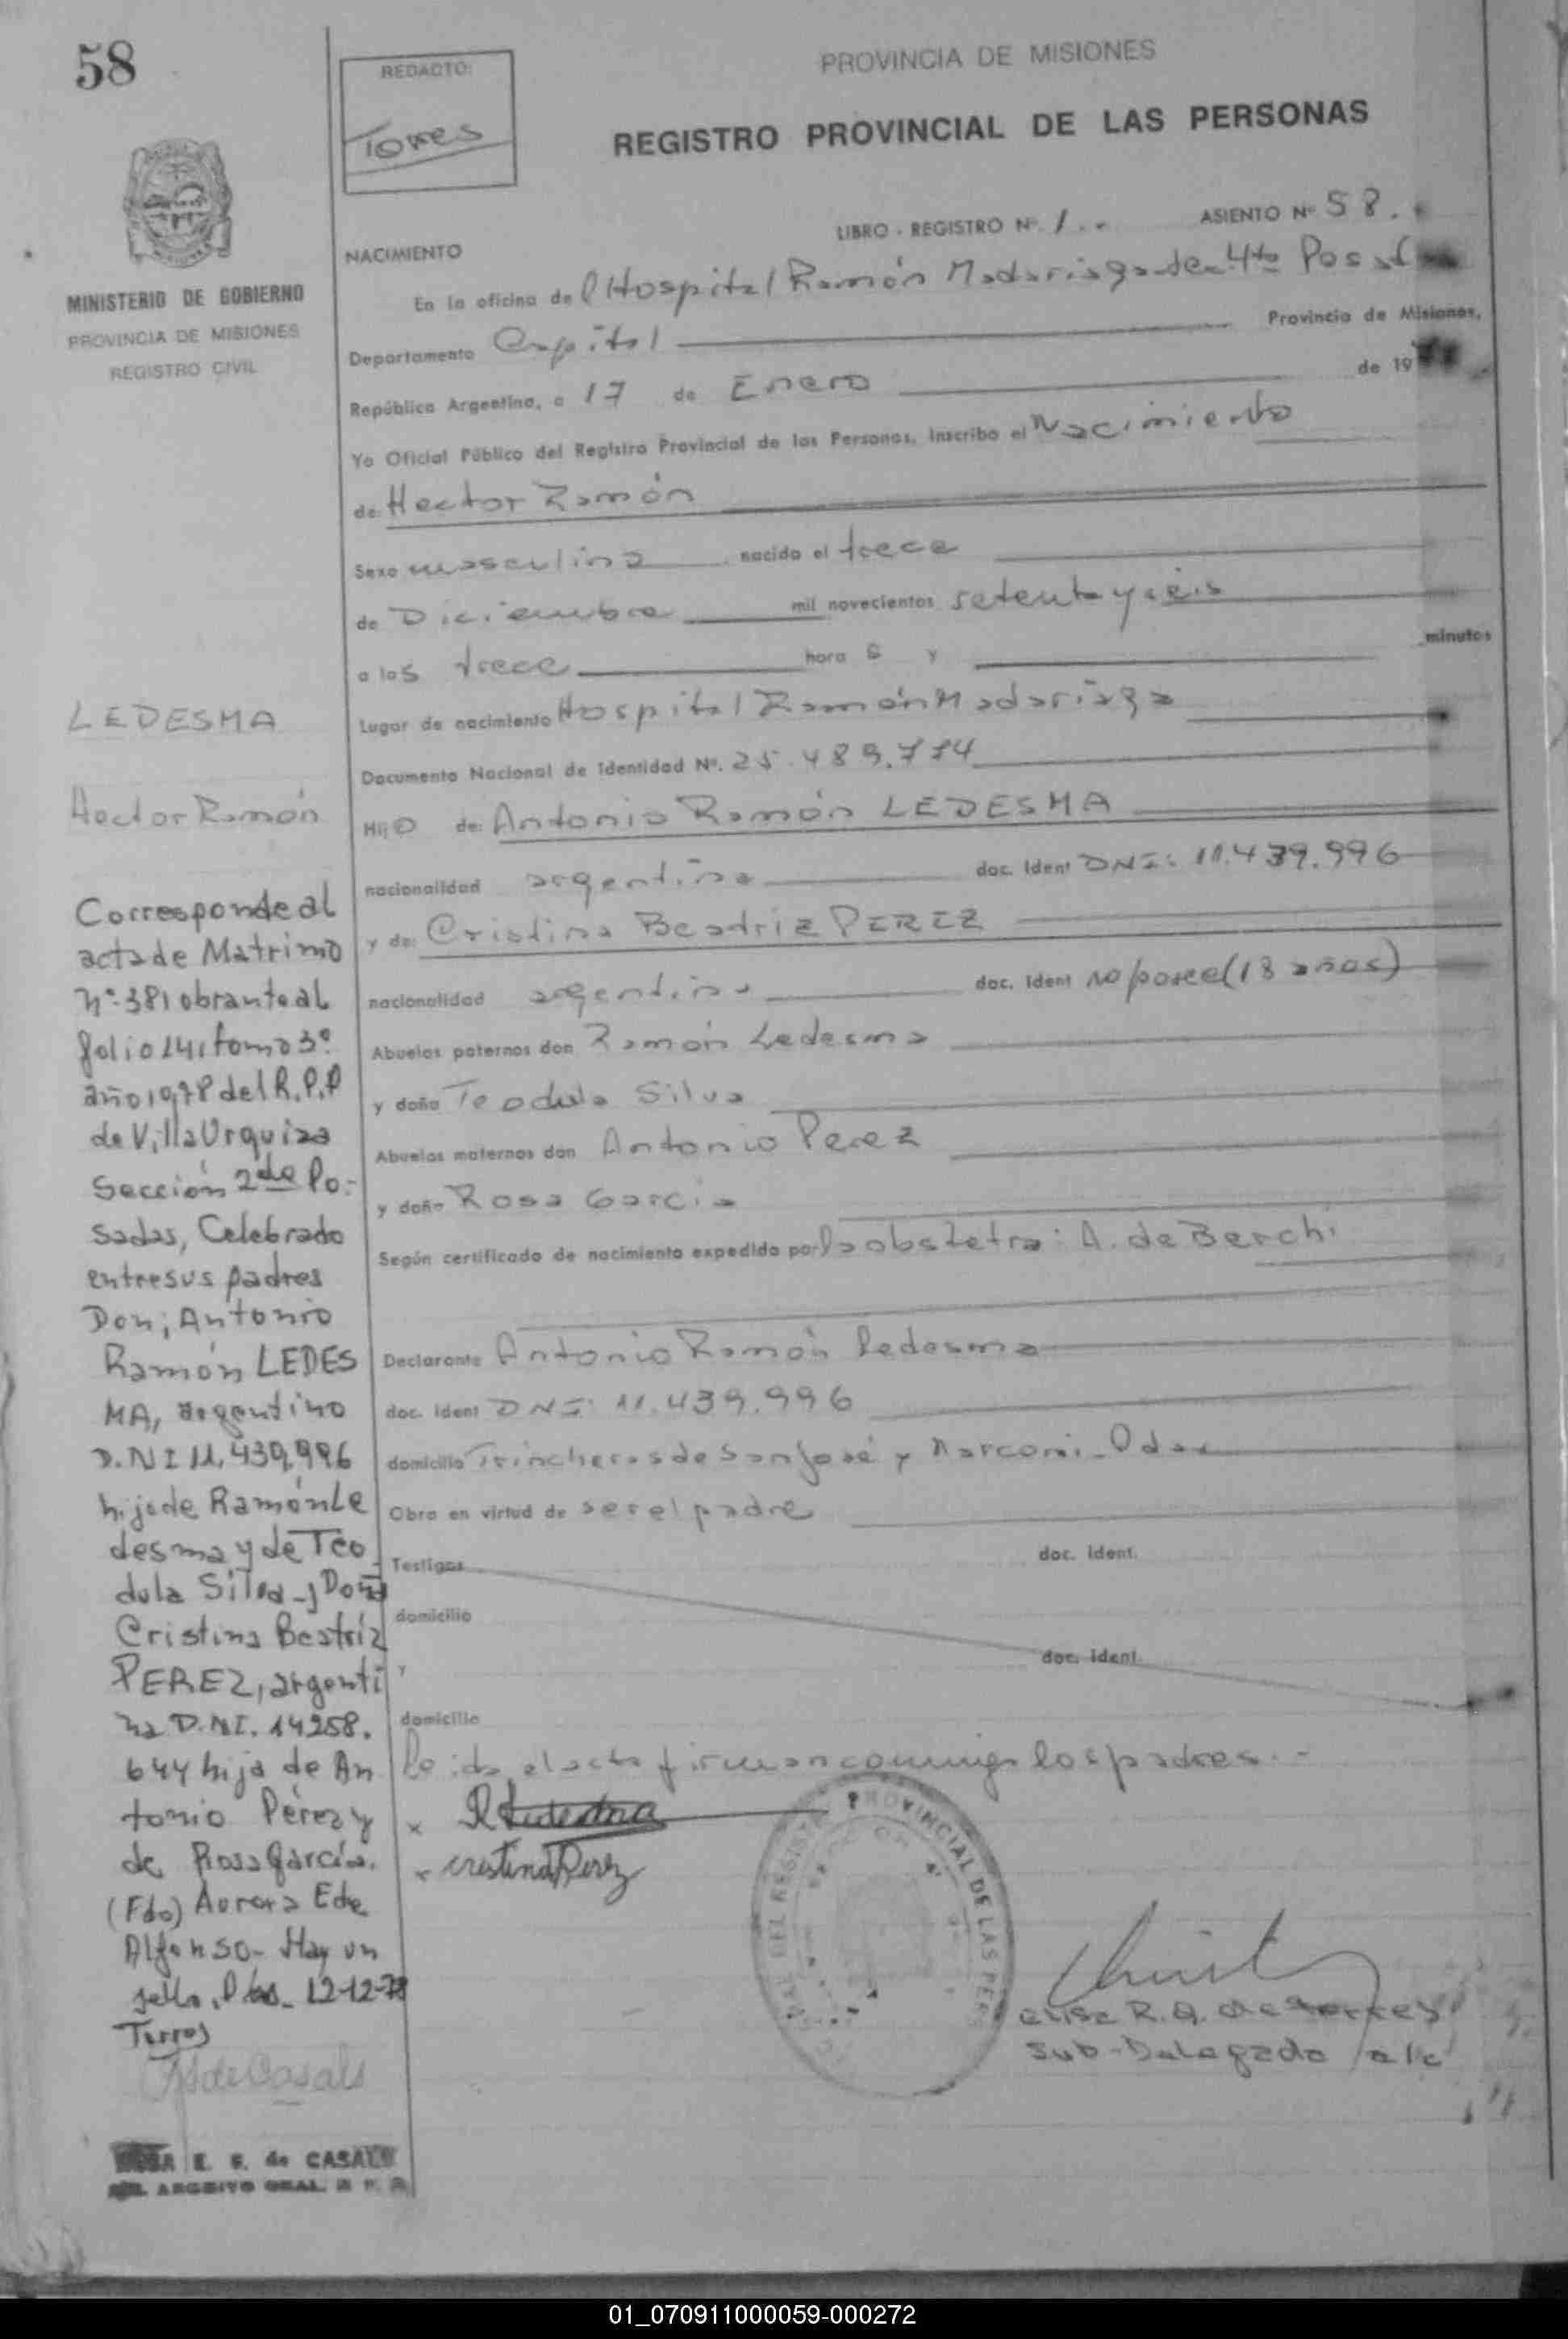 58
REDACTO:
Torres
PROVINCIA DE MISIONES
REGISTRO PROVINCIAL DE LAS PERSONAS
MINISTERIO DE GOBIERNO
PROVINCIA DE MISIONES
REGISTRO CIVIL
LIBRO - REGISTRO Nº. 1.. ASIENTO Nº 58.
NACIMIENTO
En la oficina del Hospital Ramón Madariaga-dea-4ta
Departamento Capital Provincia de Misiones,
República Argentina, a 17 de Enero de 19
Yo Oficial Público del Registro Provincial de las Personas, inscribo el Nacimiento
de: Hector Ramón
Sexo masculino nacido el trece
de Diciembre mil novecientos setenta y seis
a las trece hora s y minutos
Lugar de nacimiento Hospital Ramón Madariaga
Documento Nacional de Identidad Nº. 25.489.774
Hijo de: Antonio Ramón LEDESMA
nacionalidad argentina doc. Ident DNI: 11.439.996
y de: Cristina Beatriz PEREZ
nacionalidad argentina doc. Ident no posee (18 años)
Abuelos paternos don Ramón Ledesma
y doña Teodula Silva
Abuelos maternos don Antonio Perez
y doña Rosa Garcia
Según certificado de nacimiento expedido por la obstetra: A. de Berchi
Declarante Antonio Ramón Ledesma
doc. Ident DNI: 11.439.996
domicilio Trincheras de San José y Marconi - Pdas
Obra en virtud de ser el padre
Testigos doc. ident.
domicilio
y doc. ident.
domicilio
Leida el acta firman conmigo los padres.-
x R Ledesma
x Cristina Perez
PROVINCIAL DE LAS PERS
DEL REGISTR
Elisa R. A. de Torres
Sub-Delegada a/c
LEDESMA
Hector Ramón
Corresponde al
acta de Matrimo
nº 381 obrante al
folio 141 tomo 3º
año 1978 del R.P.P
de Villa Urquiza
Sección 2da Po-
sadas, Celebrado
entre sus padres
Don; Antonio
Ramón LEDES
MA, argentino
D.N I 11,439,996
hijo de Ramón Le
desma y de Teo
dula Silva -y Doña
Cristina Beatriz
PEREZ, argenti
na D.NI. 14258.
644 hija de An
tonio Pérez y
de Rosa García.
(Fdo) Aurora E de
Alfonso- Hay un
sello. Pdas. 12-12-78
Torres
de Casals
E. S. de CASALS
ARCHIVO GRAL. R P. P.
01_070911000059-000272